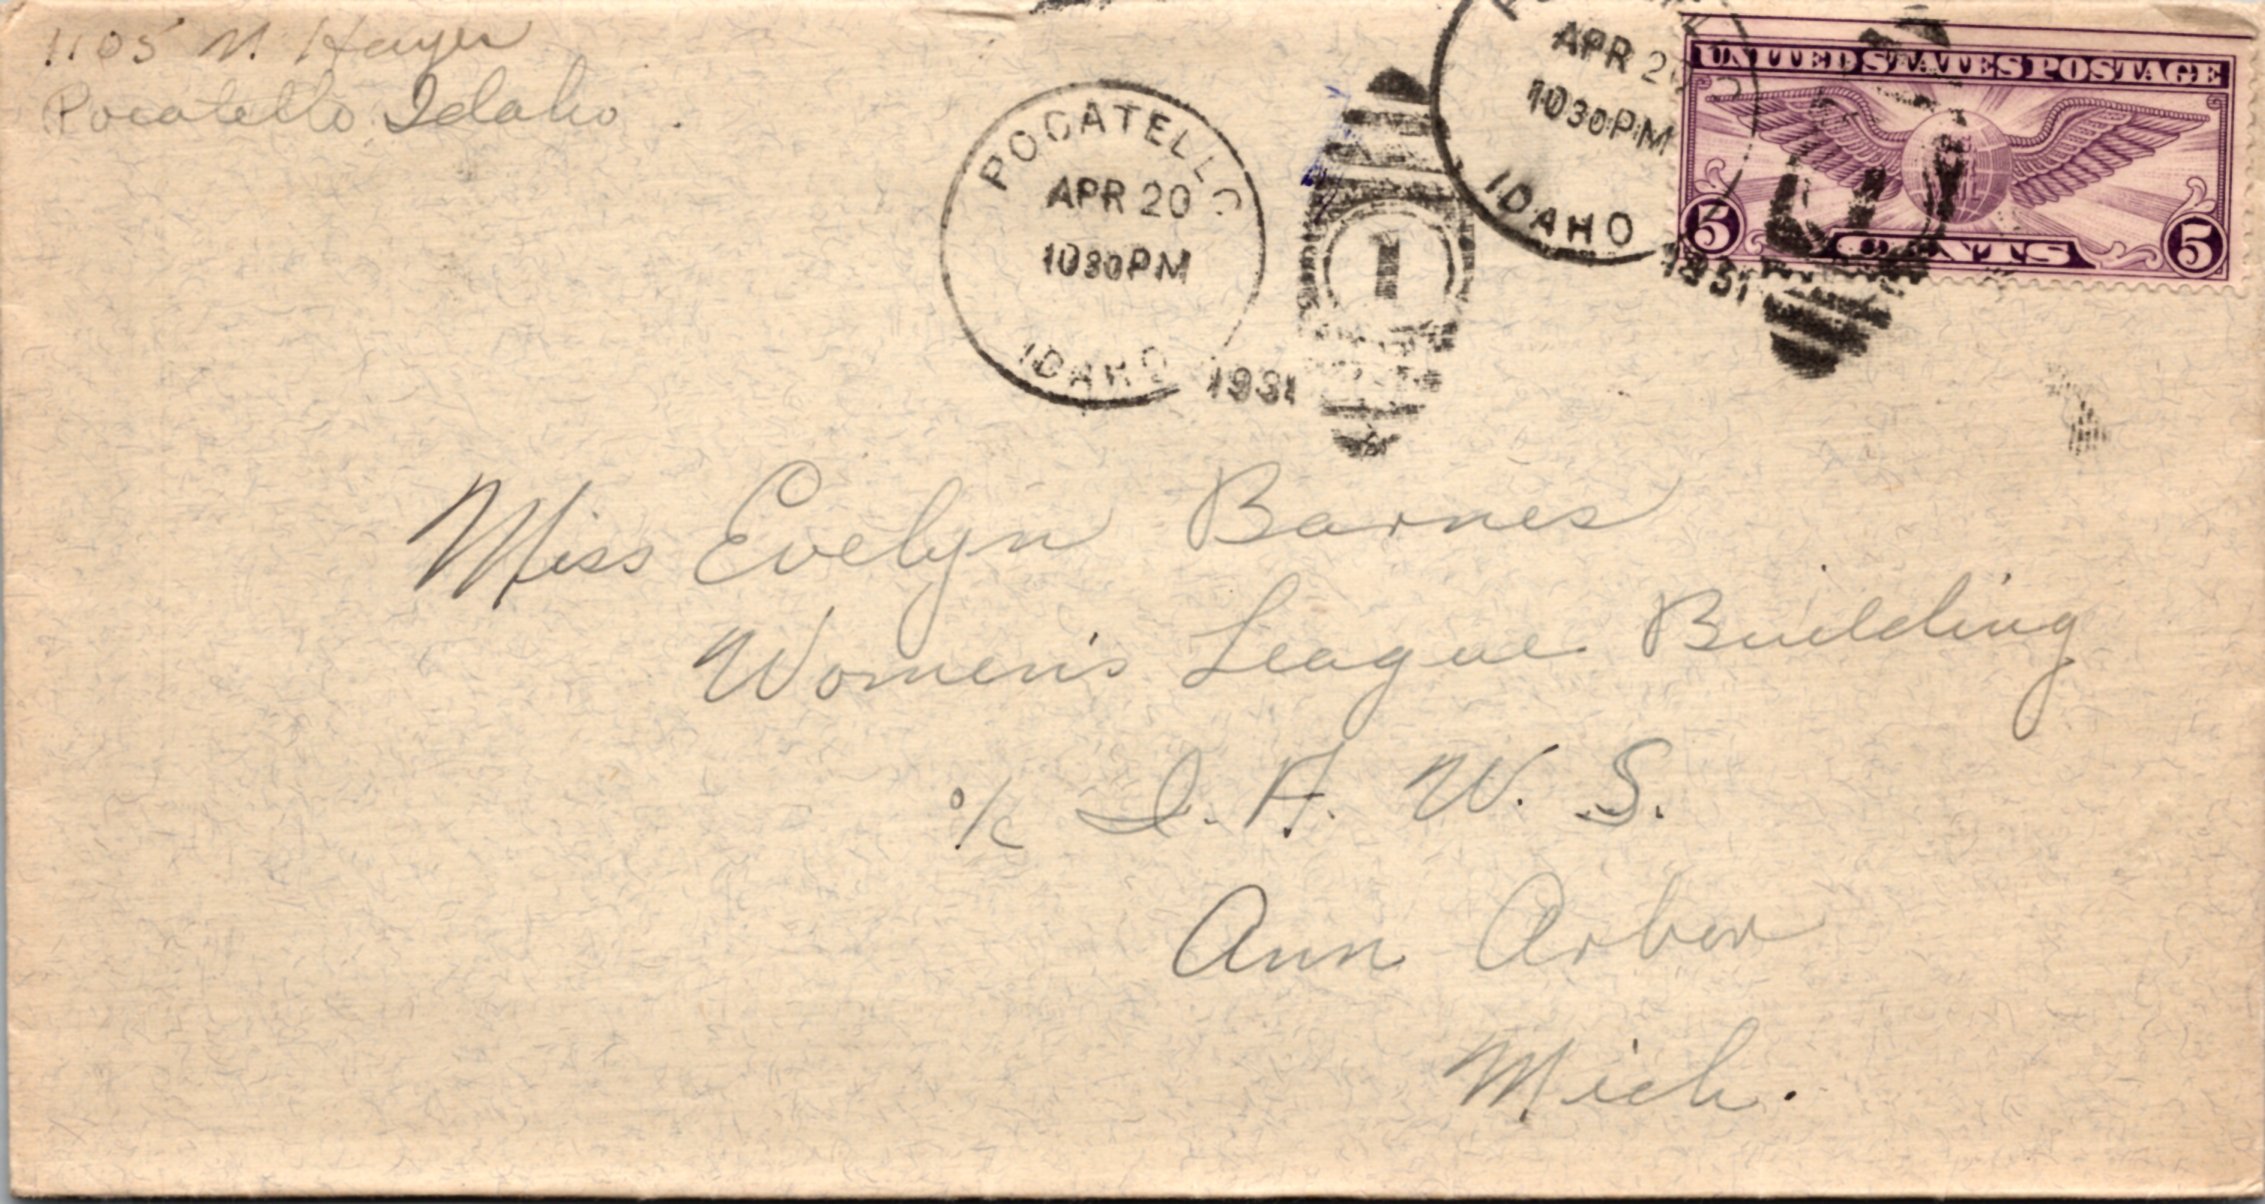 1105 N. Hayes
Pocatello Idaho.
POCATELLO
APR 20
1030PM
IDAHO
1931
1
APR 20
1030PM
IDAHO
1931
UNITED STATES POSTAGE
5 CENTS 5
Miss Evelyn Barnes
Women's League Building
c/o I. A. W. S.
Ann Arbor
Mich.